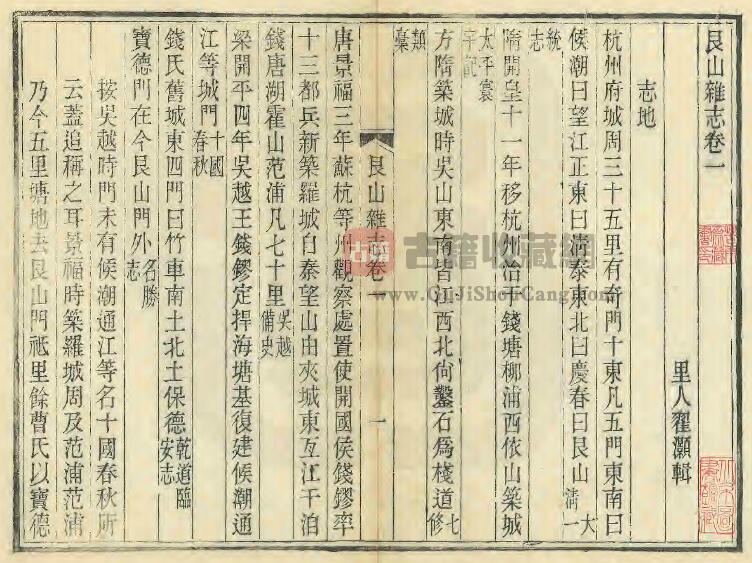 艮山雜志卷一
里人翟灝輯
志地
杭州府城周三十五里有奇門十東凡五門東南曰
候潮曰望江正東曰淸泰東北曰慶春曰艮山大淸一
統志
隋開皇十一年移杭州治于錢塘柳浦西依山築城
太平寰宇記
方隋築城時吳山東南皆江西北尙鑿石爲棧道七修
類稾
唐景福三年蘇杭等州觀察處置使開國侯錢鏐率
十三都兵新築羅城自秦望山由夾城東亙江干洎
錢唐湖霍山范浦凡七十里吳越備史
梁開平四年吳越王錢鏐定捍海塘基復建候潮通
江等城門十國春秋
錢氏舊城東四門曰竹車南土北土保德乾道臨安志
寶德門在今艮山門外名勝志
按吳越時門未有候潮通江等名十國春秋所
云蓋追稱之耳景福時築羅城周及范浦范浦
乃今五里塘地去艮山門祗里餘曹氏以寶德
艮山雜志卷一
一
古籍
古籍收藏網
www.GuJiShouCang.com